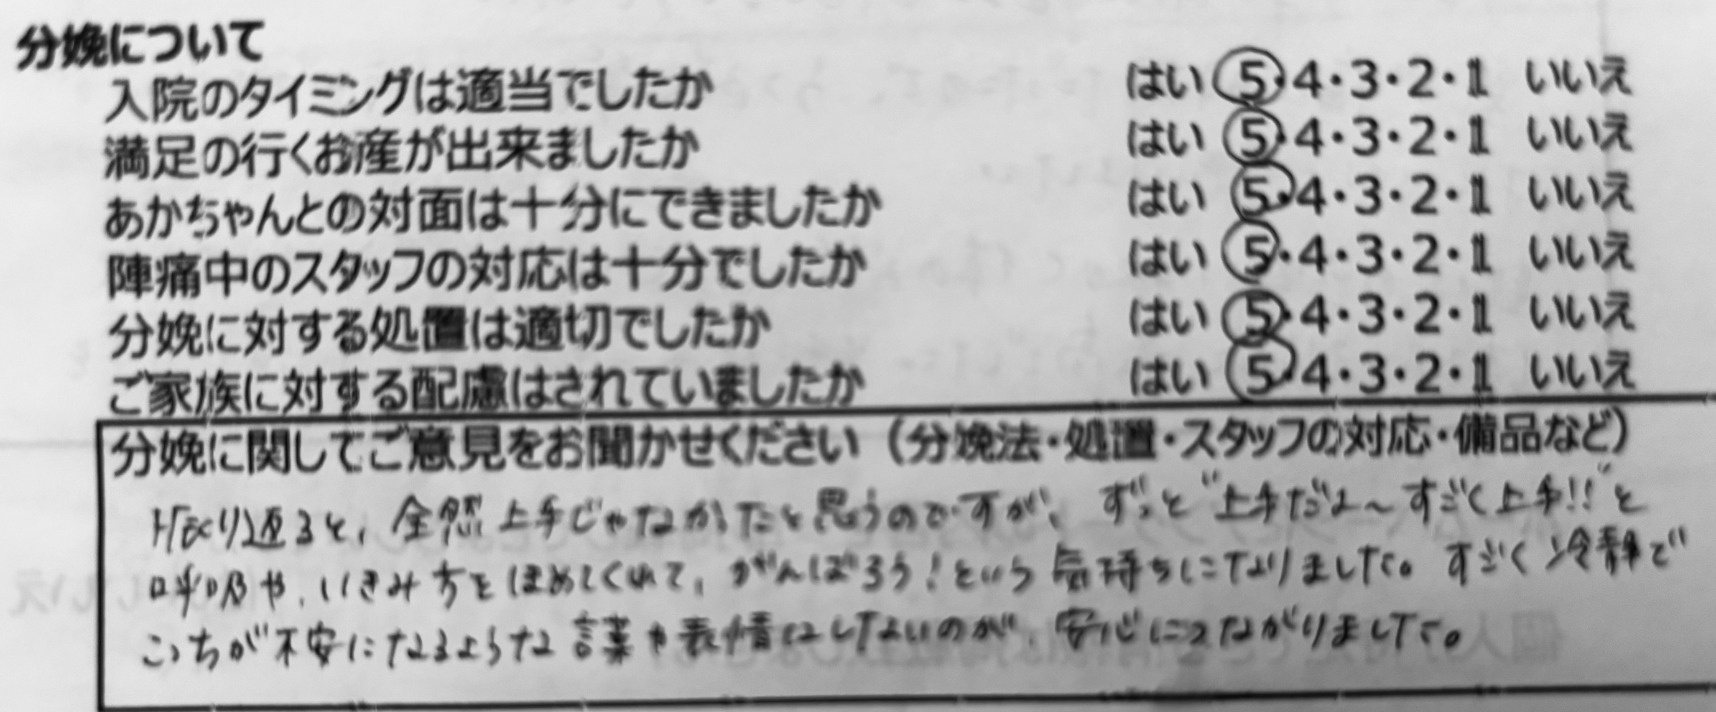 分娩について
入院のタイミングは適当でしたか はい 5・4・3・2・1 いいえ
満足の行くお産が出来ましたか はい 5・4・3・2・1 いいえ
あかちゃんとの対面は十分にできましたか はい 5・4・3・2・1 いいえ
陣痛中のスタッフの対応は十分でしたか はい 5・4・3・2・1 いいえ
分娩に対する処置は適切でしたか はい 5・4・3・2・1 いいえ
ご家族に対する配慮はされていましたか はい 5・4・3・2・1 いいえ
分娩に関してご意見をお聞かせください（分娩法・処置・スタッフの対応・備品など）
振り返ると、全然上手じゃなかったと思うのですが、ずっと"上手だよ～すごく上手!!"と
呼吸や、いきみ方をほめてくれて、がんばろう!という気持ちになりました。すごく冷静で
こっちが不安になるような言葉や表情はしないのが、安心につながりました。